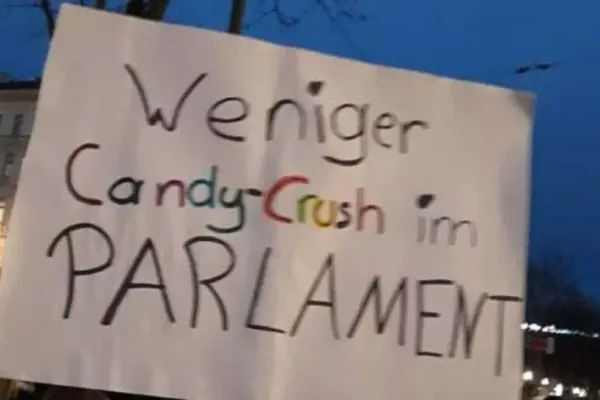 Weniger
Candy-Crush im
PARLAMENT